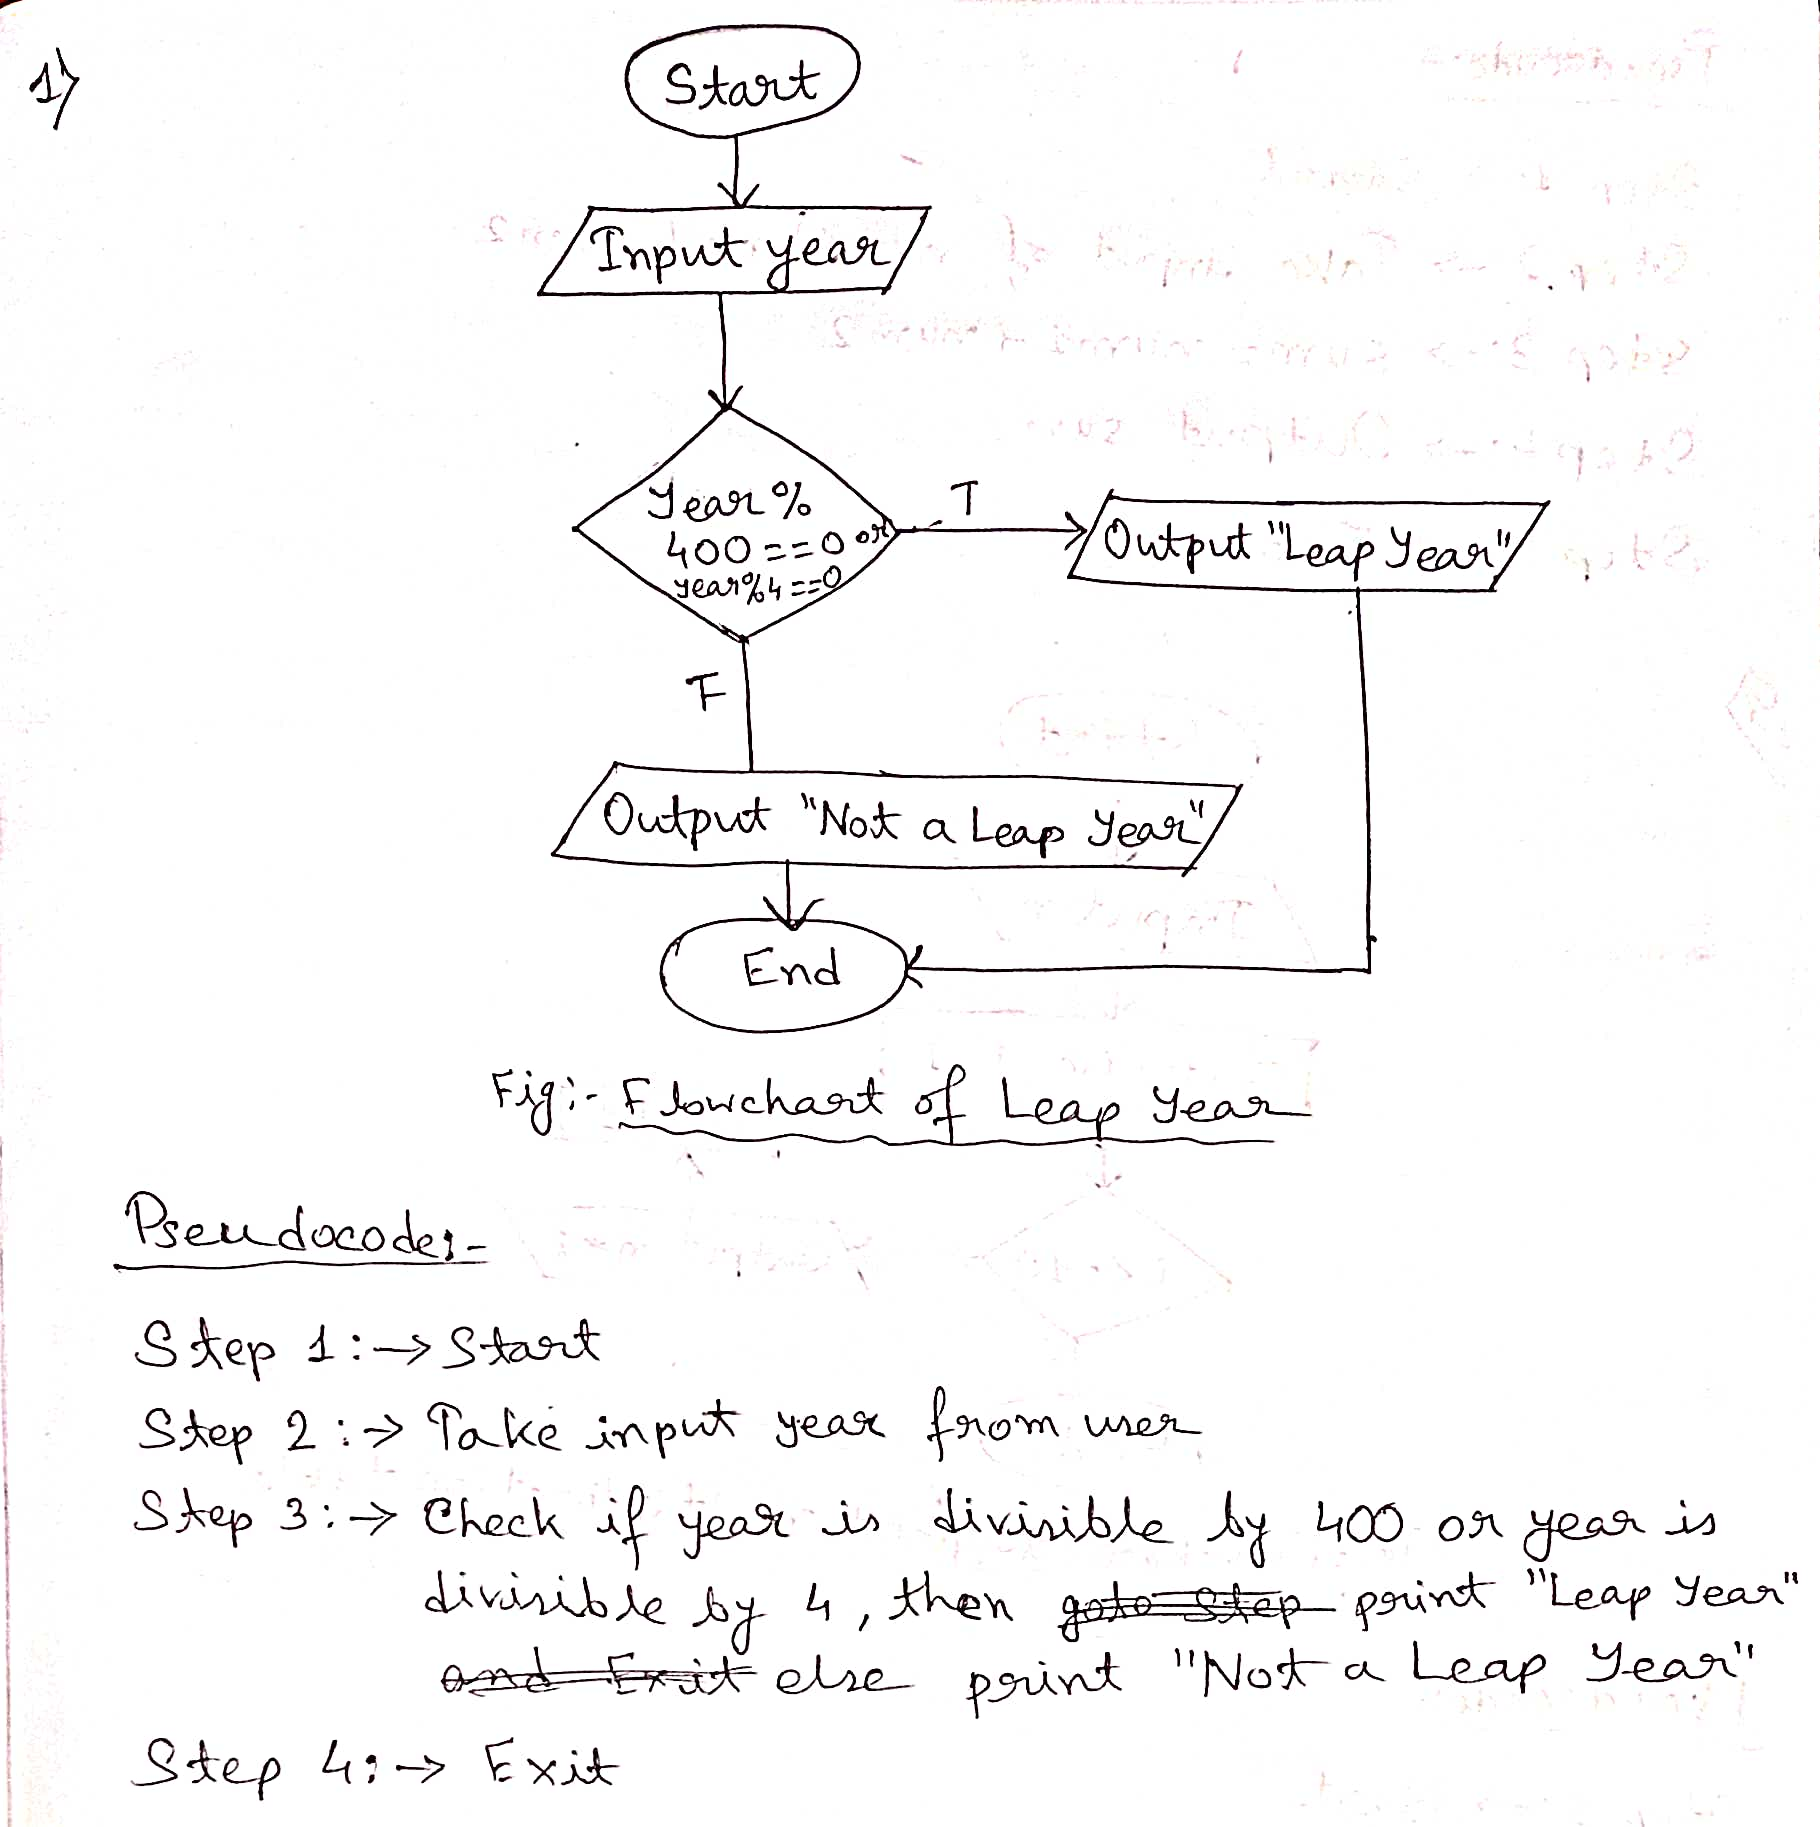 1)
Start
Input year
Year %
400 == 0 or
year%4 ==0
T
Output "Leap Year"
F
Output "Not a Leap Year"
End
Fig:- Flowchart of Leap Year
Pseudocode:-
Step 1:→ Start
Step 2:→ Take input year from user
Step 3:→ Check if year is divisible by 400 or year is
divisible by 4, then goto Step print "Leap Year"
and Exit else print "Not a Leap Year"
Step 4:→ Exit